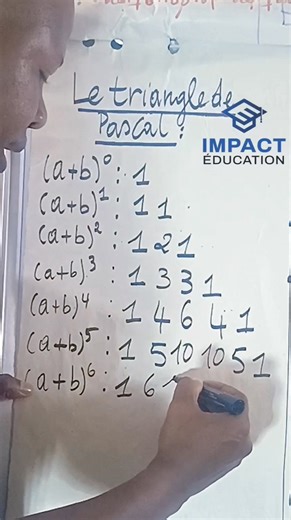 Le triangle de
Pascal :
IMPACT
ÉDUCATION
(a+b)⁰ : 1
(a+b)¹ : 1 1
(a+b)² : 1 2 1
(a+b)³ : 1 3 3 1
(a+b)⁴ : 1 4 6 4 1
(a+b)⁵ : 1 5 10 10 5 1
(a+b)⁶ : 1 6 1